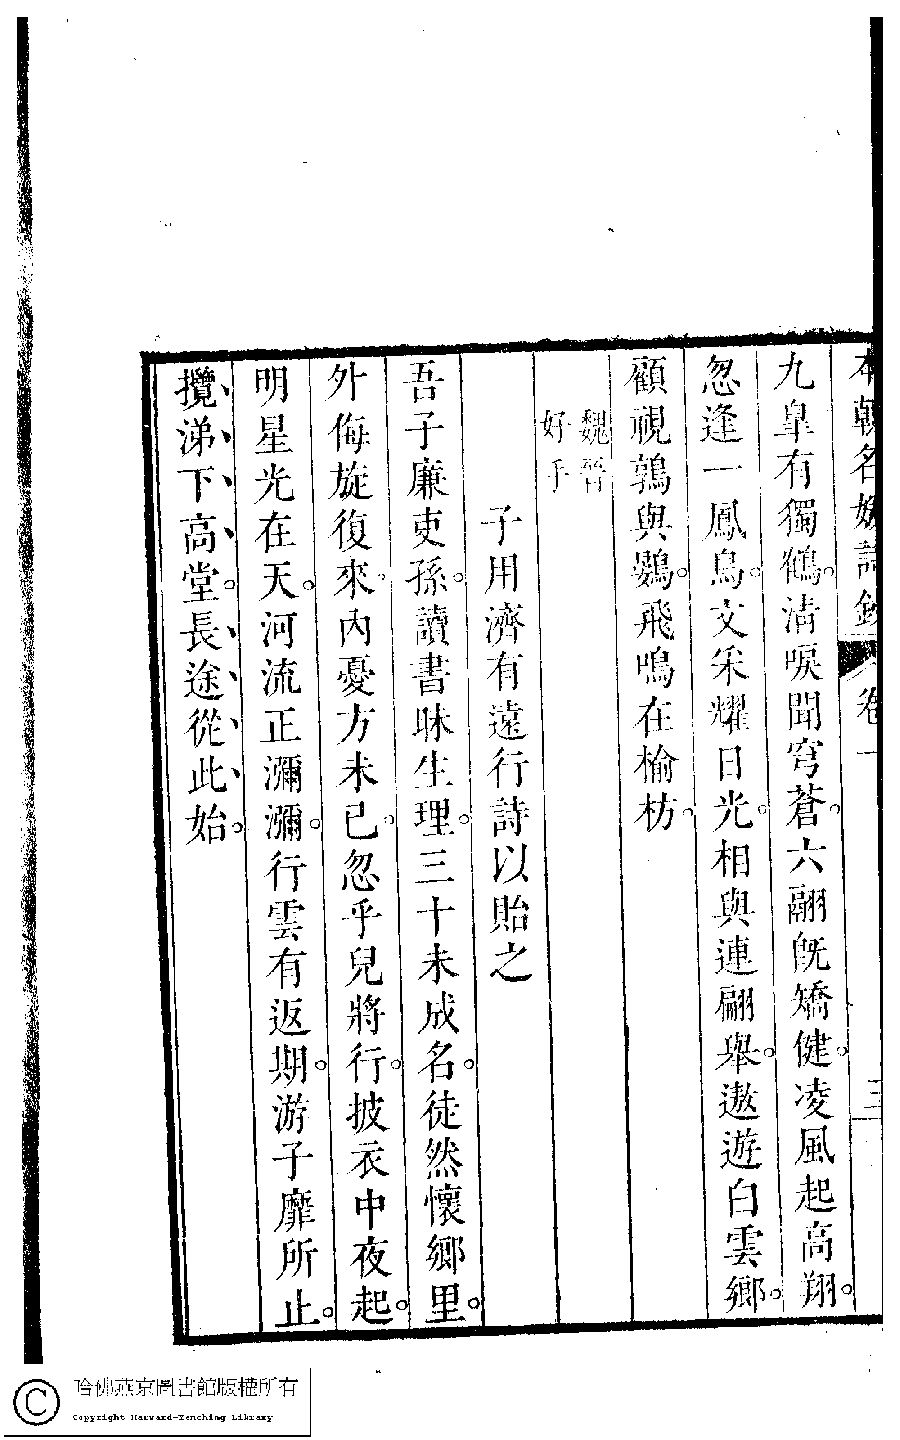 本朝名媛詩鈔 卷一 三
九皐有獨鶴。清唳聞穹蒼。六翮旣矯健。凌風起高翔。
忽逢一鳳鳥。文采耀日光。相與連翩舉。遨遊白雲鄉。
顧視鶉與鷃。飛鳴在榆枋。
魏晉
好手
子用濟有遠行詩以貽之
吾子廉吏孫。讀書昧生理。三十未成名。徒然懷鄉里。
外侮旋復來。內憂方未已。忽乎兒將行。披衣中夜起。
明星光在天。河流正瀰瀰。行雲有返期。游子靡所止。
攬涕下高堂。長途從此始。
哈佛燕京圖書館版權所有
Copyright Harvard-Yenching Library